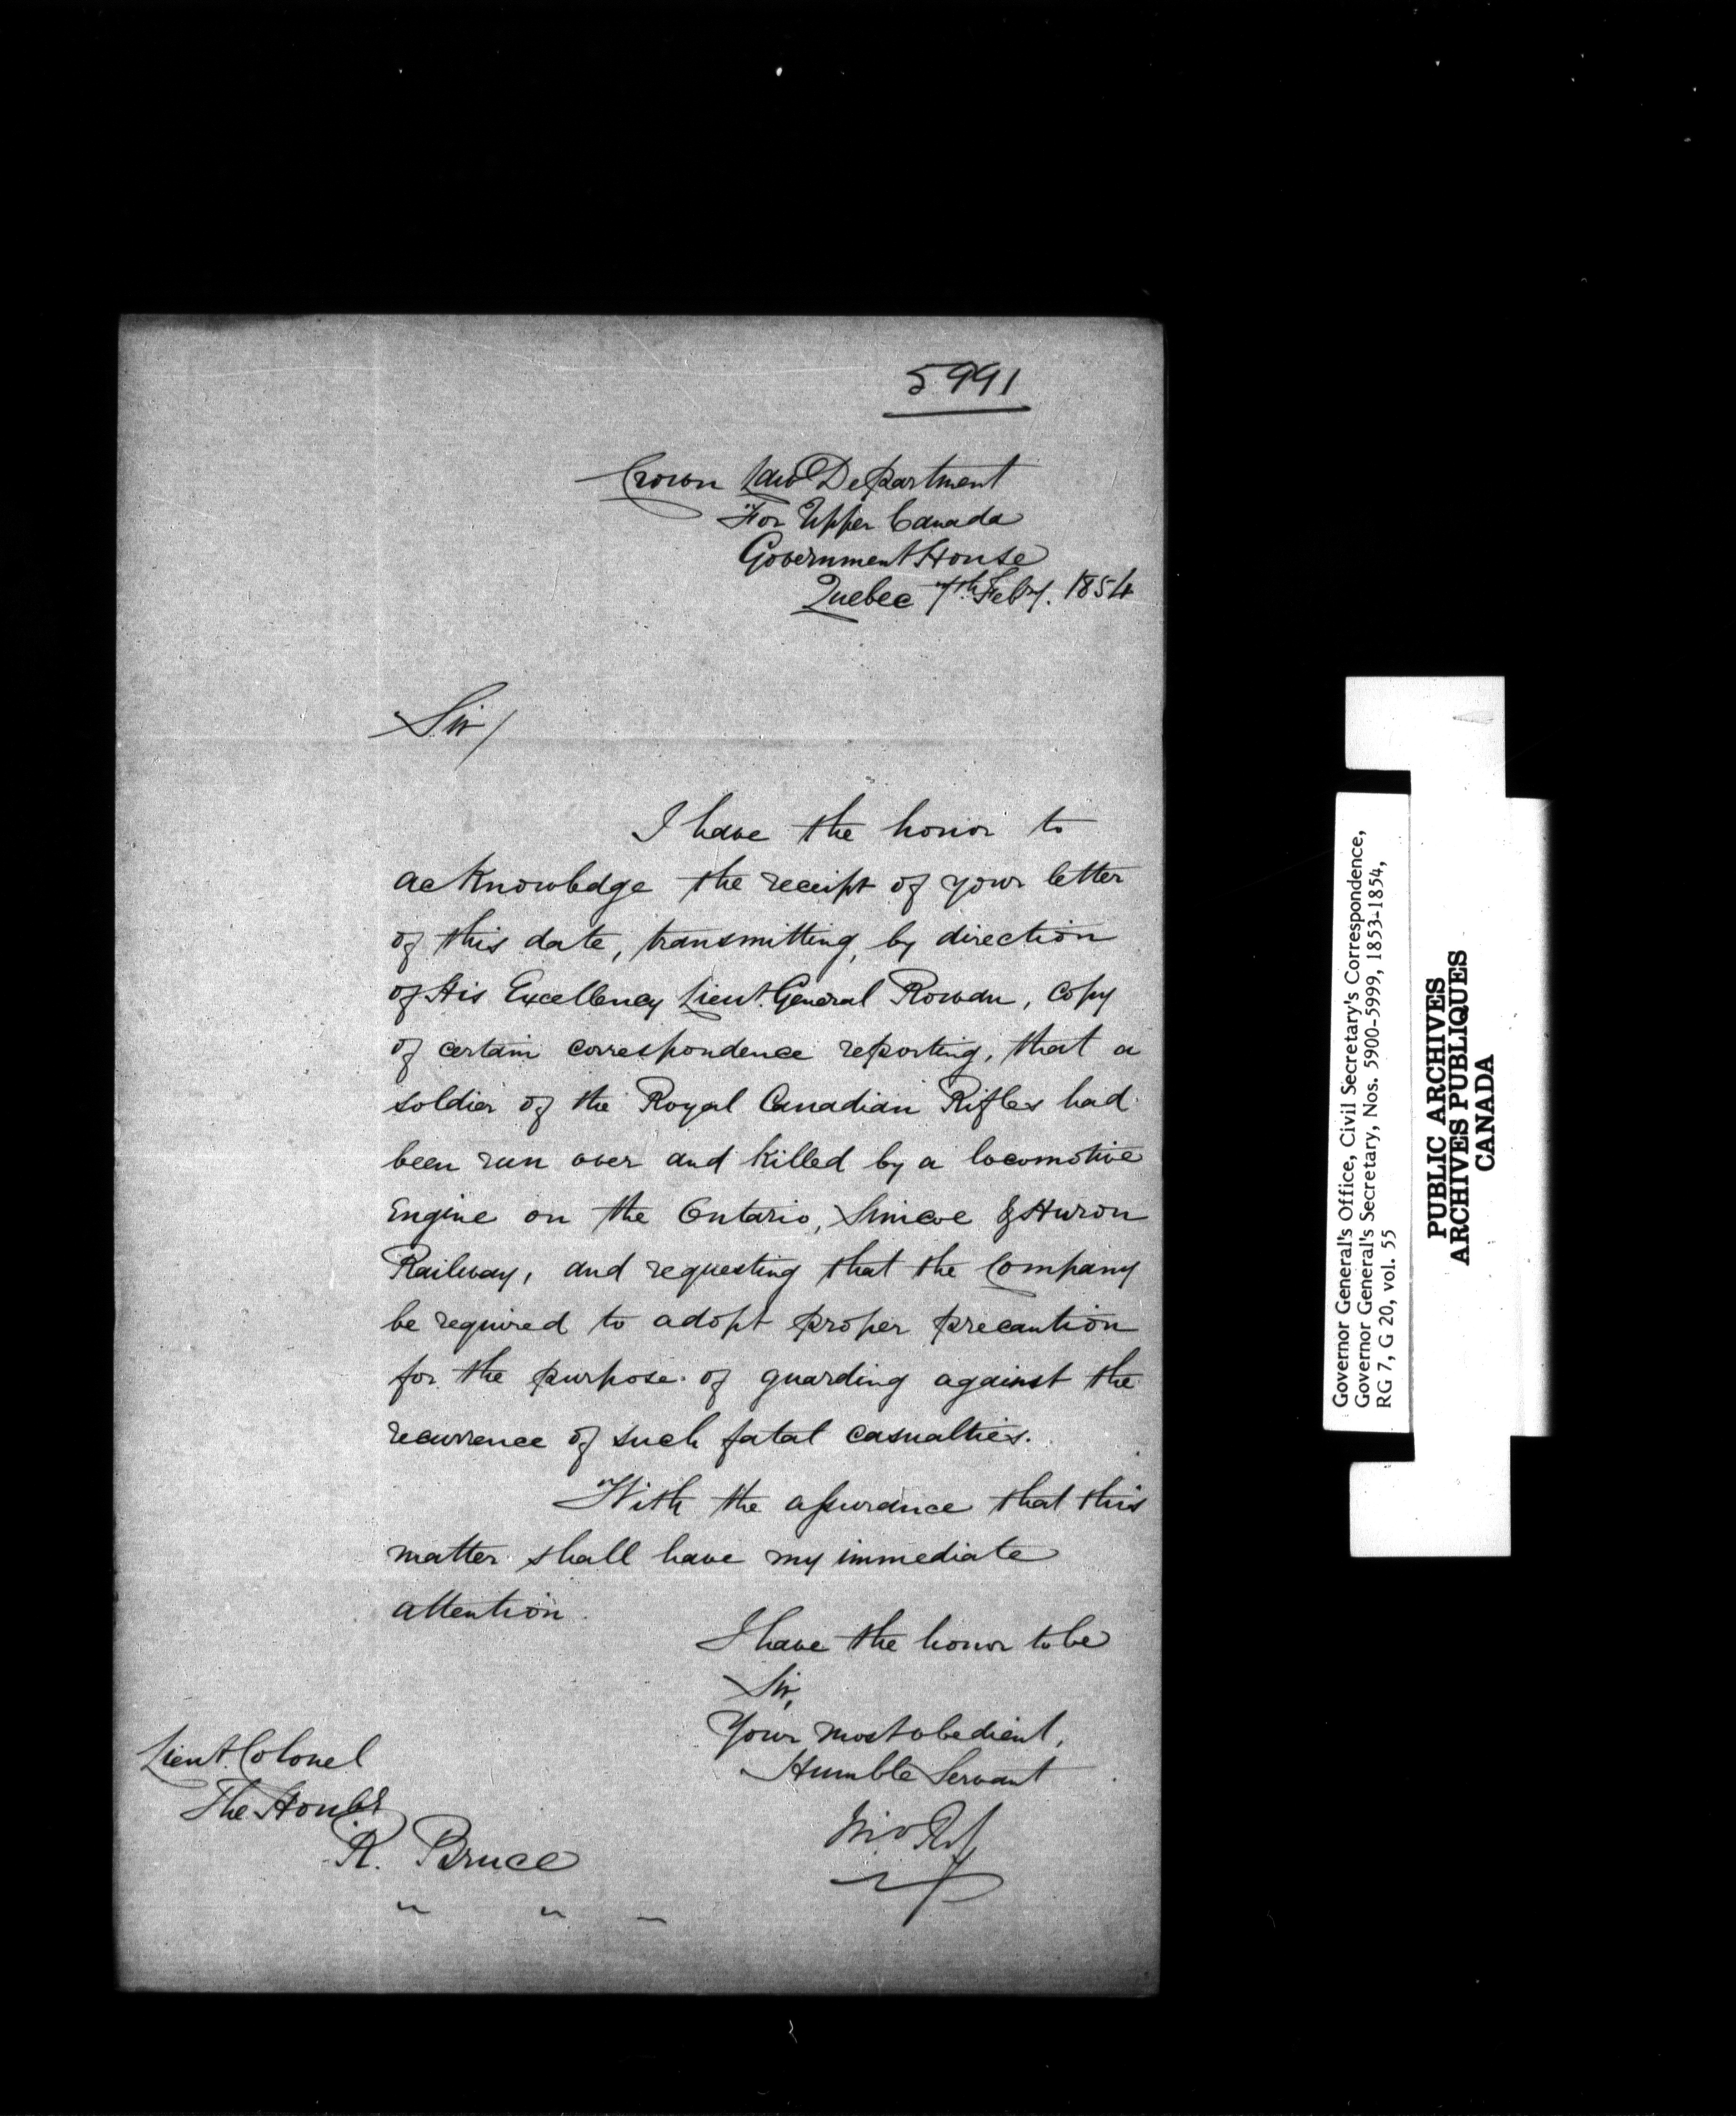 5991
Crown Law Department
For Upper Canada
Government House
Quebec 7th Feby. 1854
Sir/
I have the honor to
acknowledge the receipt of your letter
of this date, transmitting, by direction
of His Excellency Lieut. General Rowan, copy
of certain correspondence reporting, that a
soldier of the Royal Canadian Rifles had
been run over and killed by a locomotive
Engine on the Ontario, Simcoe & Huron
Railway, and requesting that the Company
be required to adopt proper precaution
for the purpose of guarding against the
recurrence of such fatal casualties.
With the assurance that this
matter shall have my immediate
attention.
I have the honor to be
Sir,
Your most obedient,
Humble Servant
Jno Ross
Lieut. Colonel
The Honble
R. Bruce
" " "
Governor General's Office, Civil Secretary's Correspondence,
Governor General's Secretary, Nos. 5900-5999, 1853-1854,
RG 7, G 20, vol. 55
PUBLIC ARCHIVES
ARCHIVES PUBLIQUES
CANADA